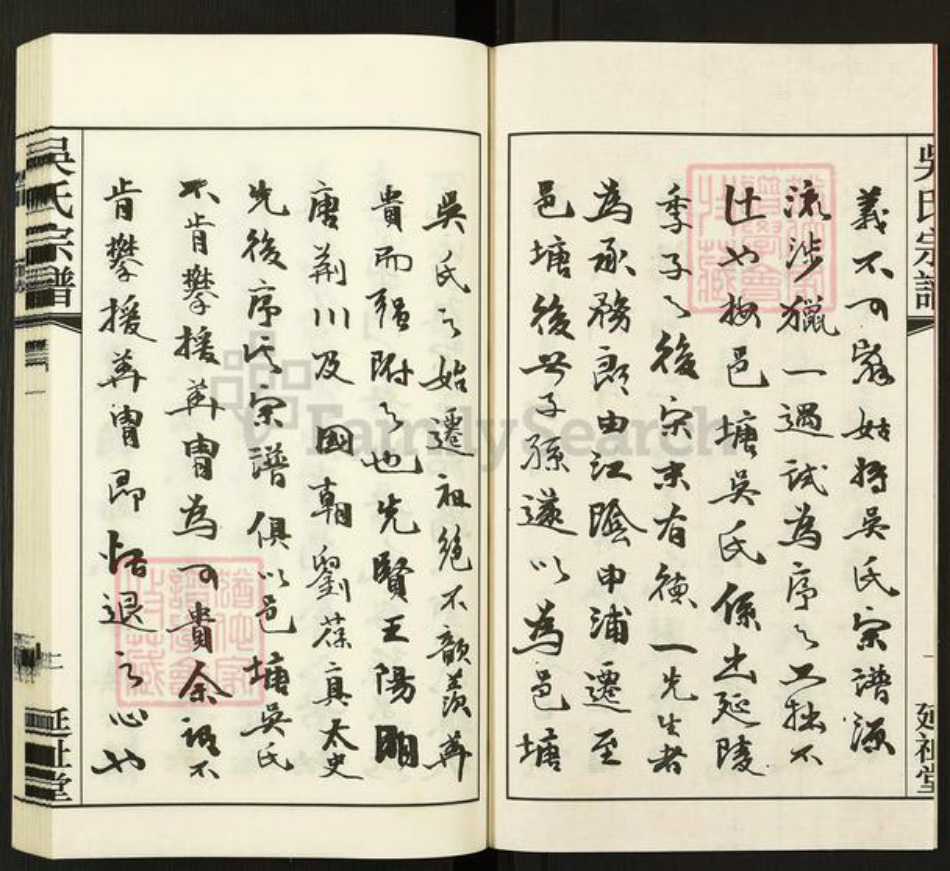 吳氏宗譜
義不可辭姑將吳氏宗譜源
流涉獵一過試為序之工拙不
計也按邑塘吳氏係出延陵
季子之後宋末有德一先生者
為承務郎由江陰申浦遷至
邑塘後世子孫遂以為邑塘
延祉堂
吳氏之始遷祖絕不歆羨華
貴而強附之也先賢王陽明
唐荊川及國朝劉葆真太史
先後序其宗譜俱以邑塘吳氏
不肯攀援華胄為可貴余謂不
肯攀援華胄即恬退之心也
吳氏宗譜
延祉堂
FamilySearch